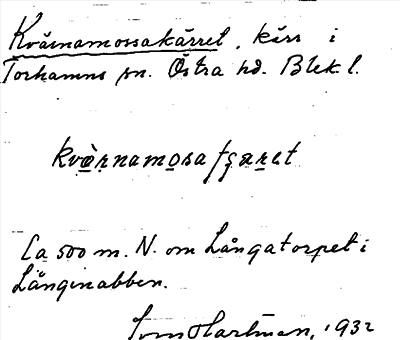 Kvärnamossakärret, kärr i
Torhamns sn. Östra hd. Blek l.
kvœ̀rnamosa
Ca 500 m. N. om Långatorpet i
Långenabben.
Hartman, 1932